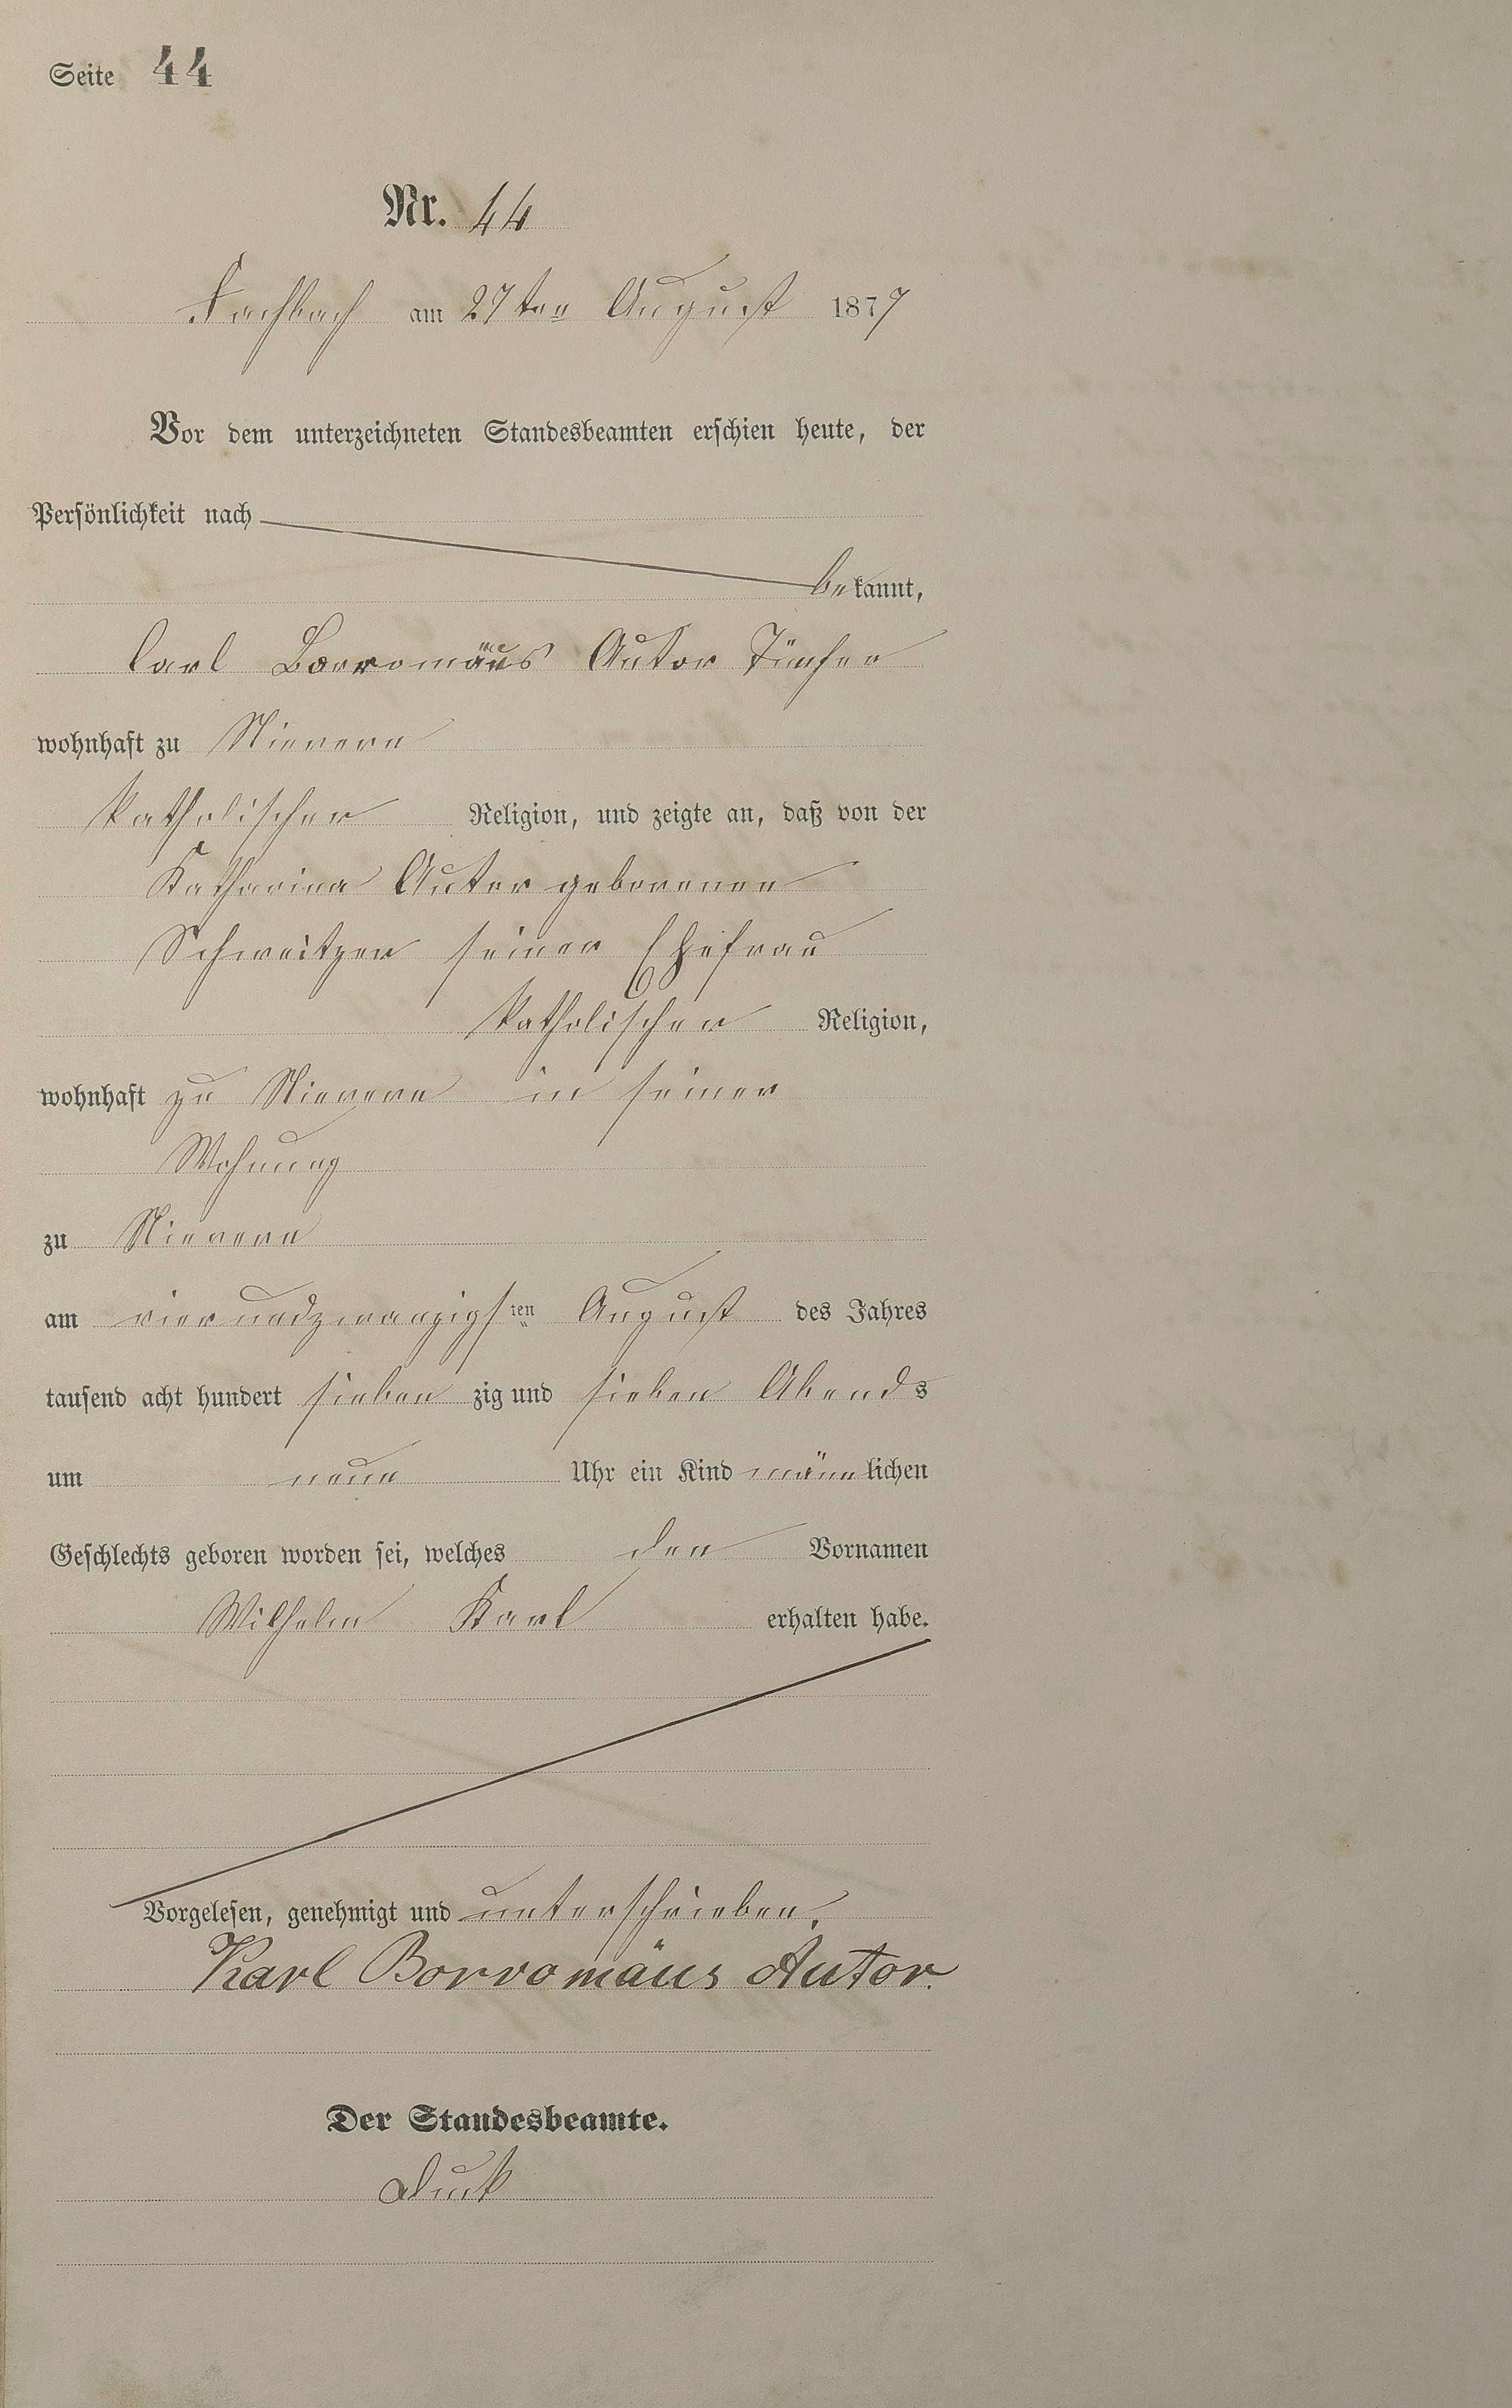 Seite 44
Nr. 44
Fachbach am 27ten August 1877
Vor dem unterzeichneten Standesbeamten erschien heute, der
Persönlichkeit nach
bekannt,
Carl Borromäus Autor Tüncher
wohnhaft zu Nievern
katholischer Religion, und zeigte an, daß von der
Katharina Autor geborenen
Schweitzer seiner Ehefrau
katholischer Religion,
wohnhaft zu Nievern in seiner
Wohnung
zu Nievern
am vierundzwanzigsten August des Jahres
tausend acht hundert sieben zig und sieben Abends
um neun Uhr ein Kind männlichen
Geschlechts geboren worden sei, welches den Vornamen
Wilhelm Karl erhalten habe.
Vorgelesen, genehmigt und unterschrieben.
Karl Borromäus Autor.
Der Standesbeamte.